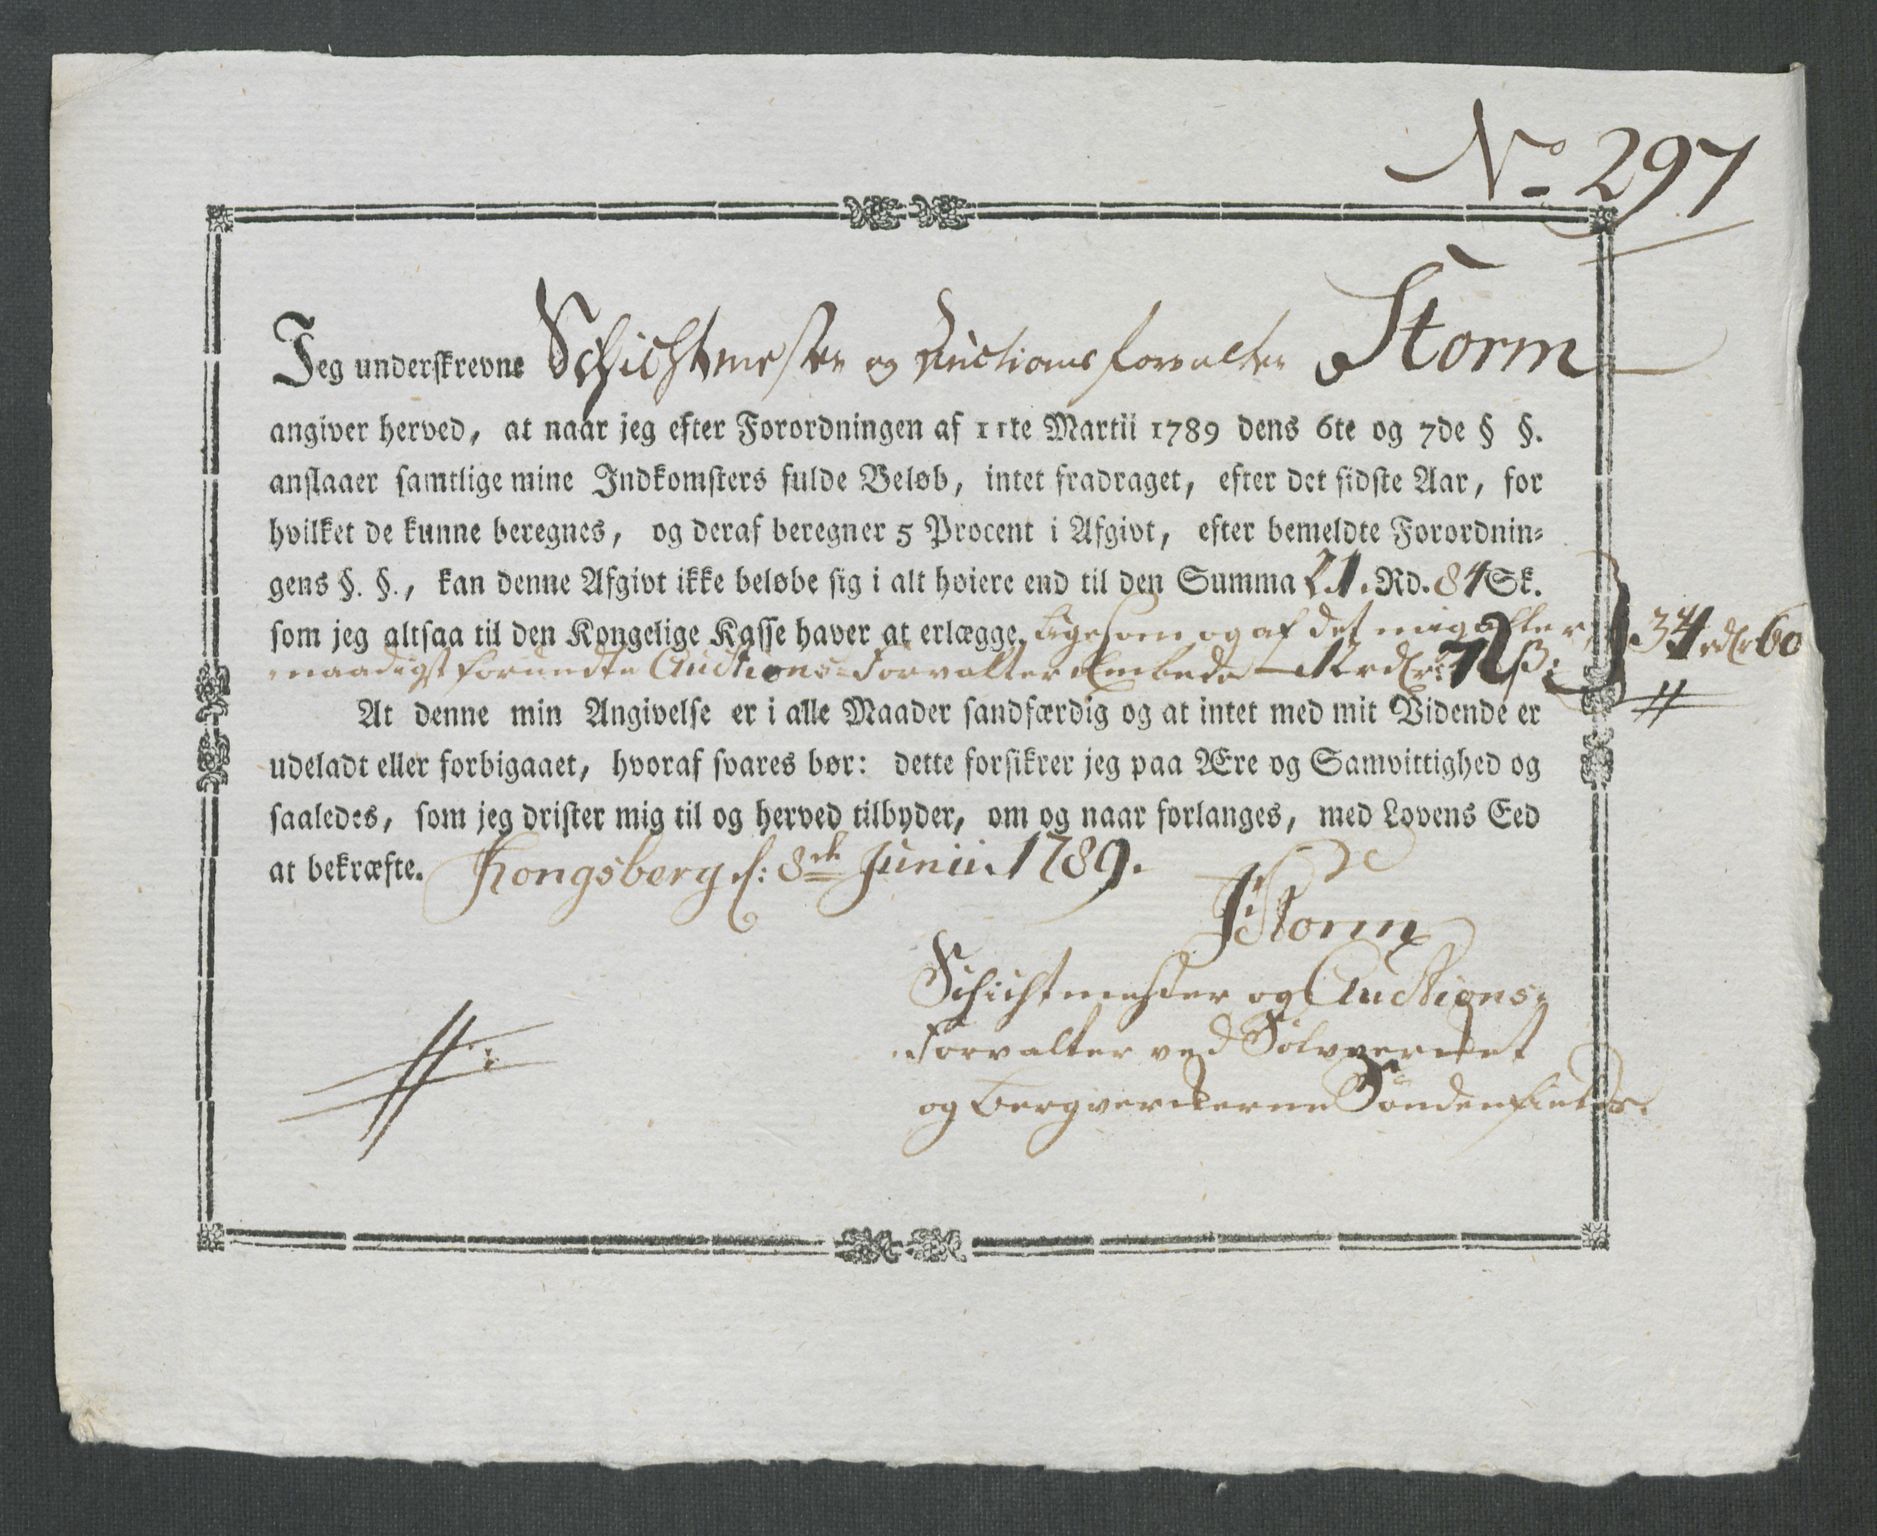 No 297
Jeg underskrevne Schichtmester og Auctionsforvalter Storm
angiver herved, at naar jeg efter Forordningen af 11te Martii 1789 dens 6te og 7de § §.
anslaaer samtlige mine Indkomsters fulde Beløb, intet fradraget, efter det sidste Aar, for
hvilket de kunne beregnes, og deraf beregner 5 Procent i Afgivt, efter bemeldte Forordnin=
gens §. §., kan denne Afgivt ikke beløbe sig i alt høiere end til den Summa 21. Rd. 84 Sk.
som jeg altsaa til den Kongelige Kasse haver at erlægge, ligesom og af det mig aller
naadigst forundte Auctions-Forvalter Embede 12 rdr 72 ß: 34 rdr 60
At denne min Angivelse er i alle Maader sandfærdig og at intet med mit Vidende er
udeladt eller forbigaaet, hvoraf svares bør: dette forsikrer jeg paa Ære og Samvittighed og
saaledes, som jeg drister mig til og herved tilbyder, om og naar forlanges, med Lovens Eed
at bekræfte. Kongsberg d: 8de Junii. 1789.
Storm
Schichtmester og Auctions-
Forvalter ved Sølvverket
og Bergverkerne Søndenfields.